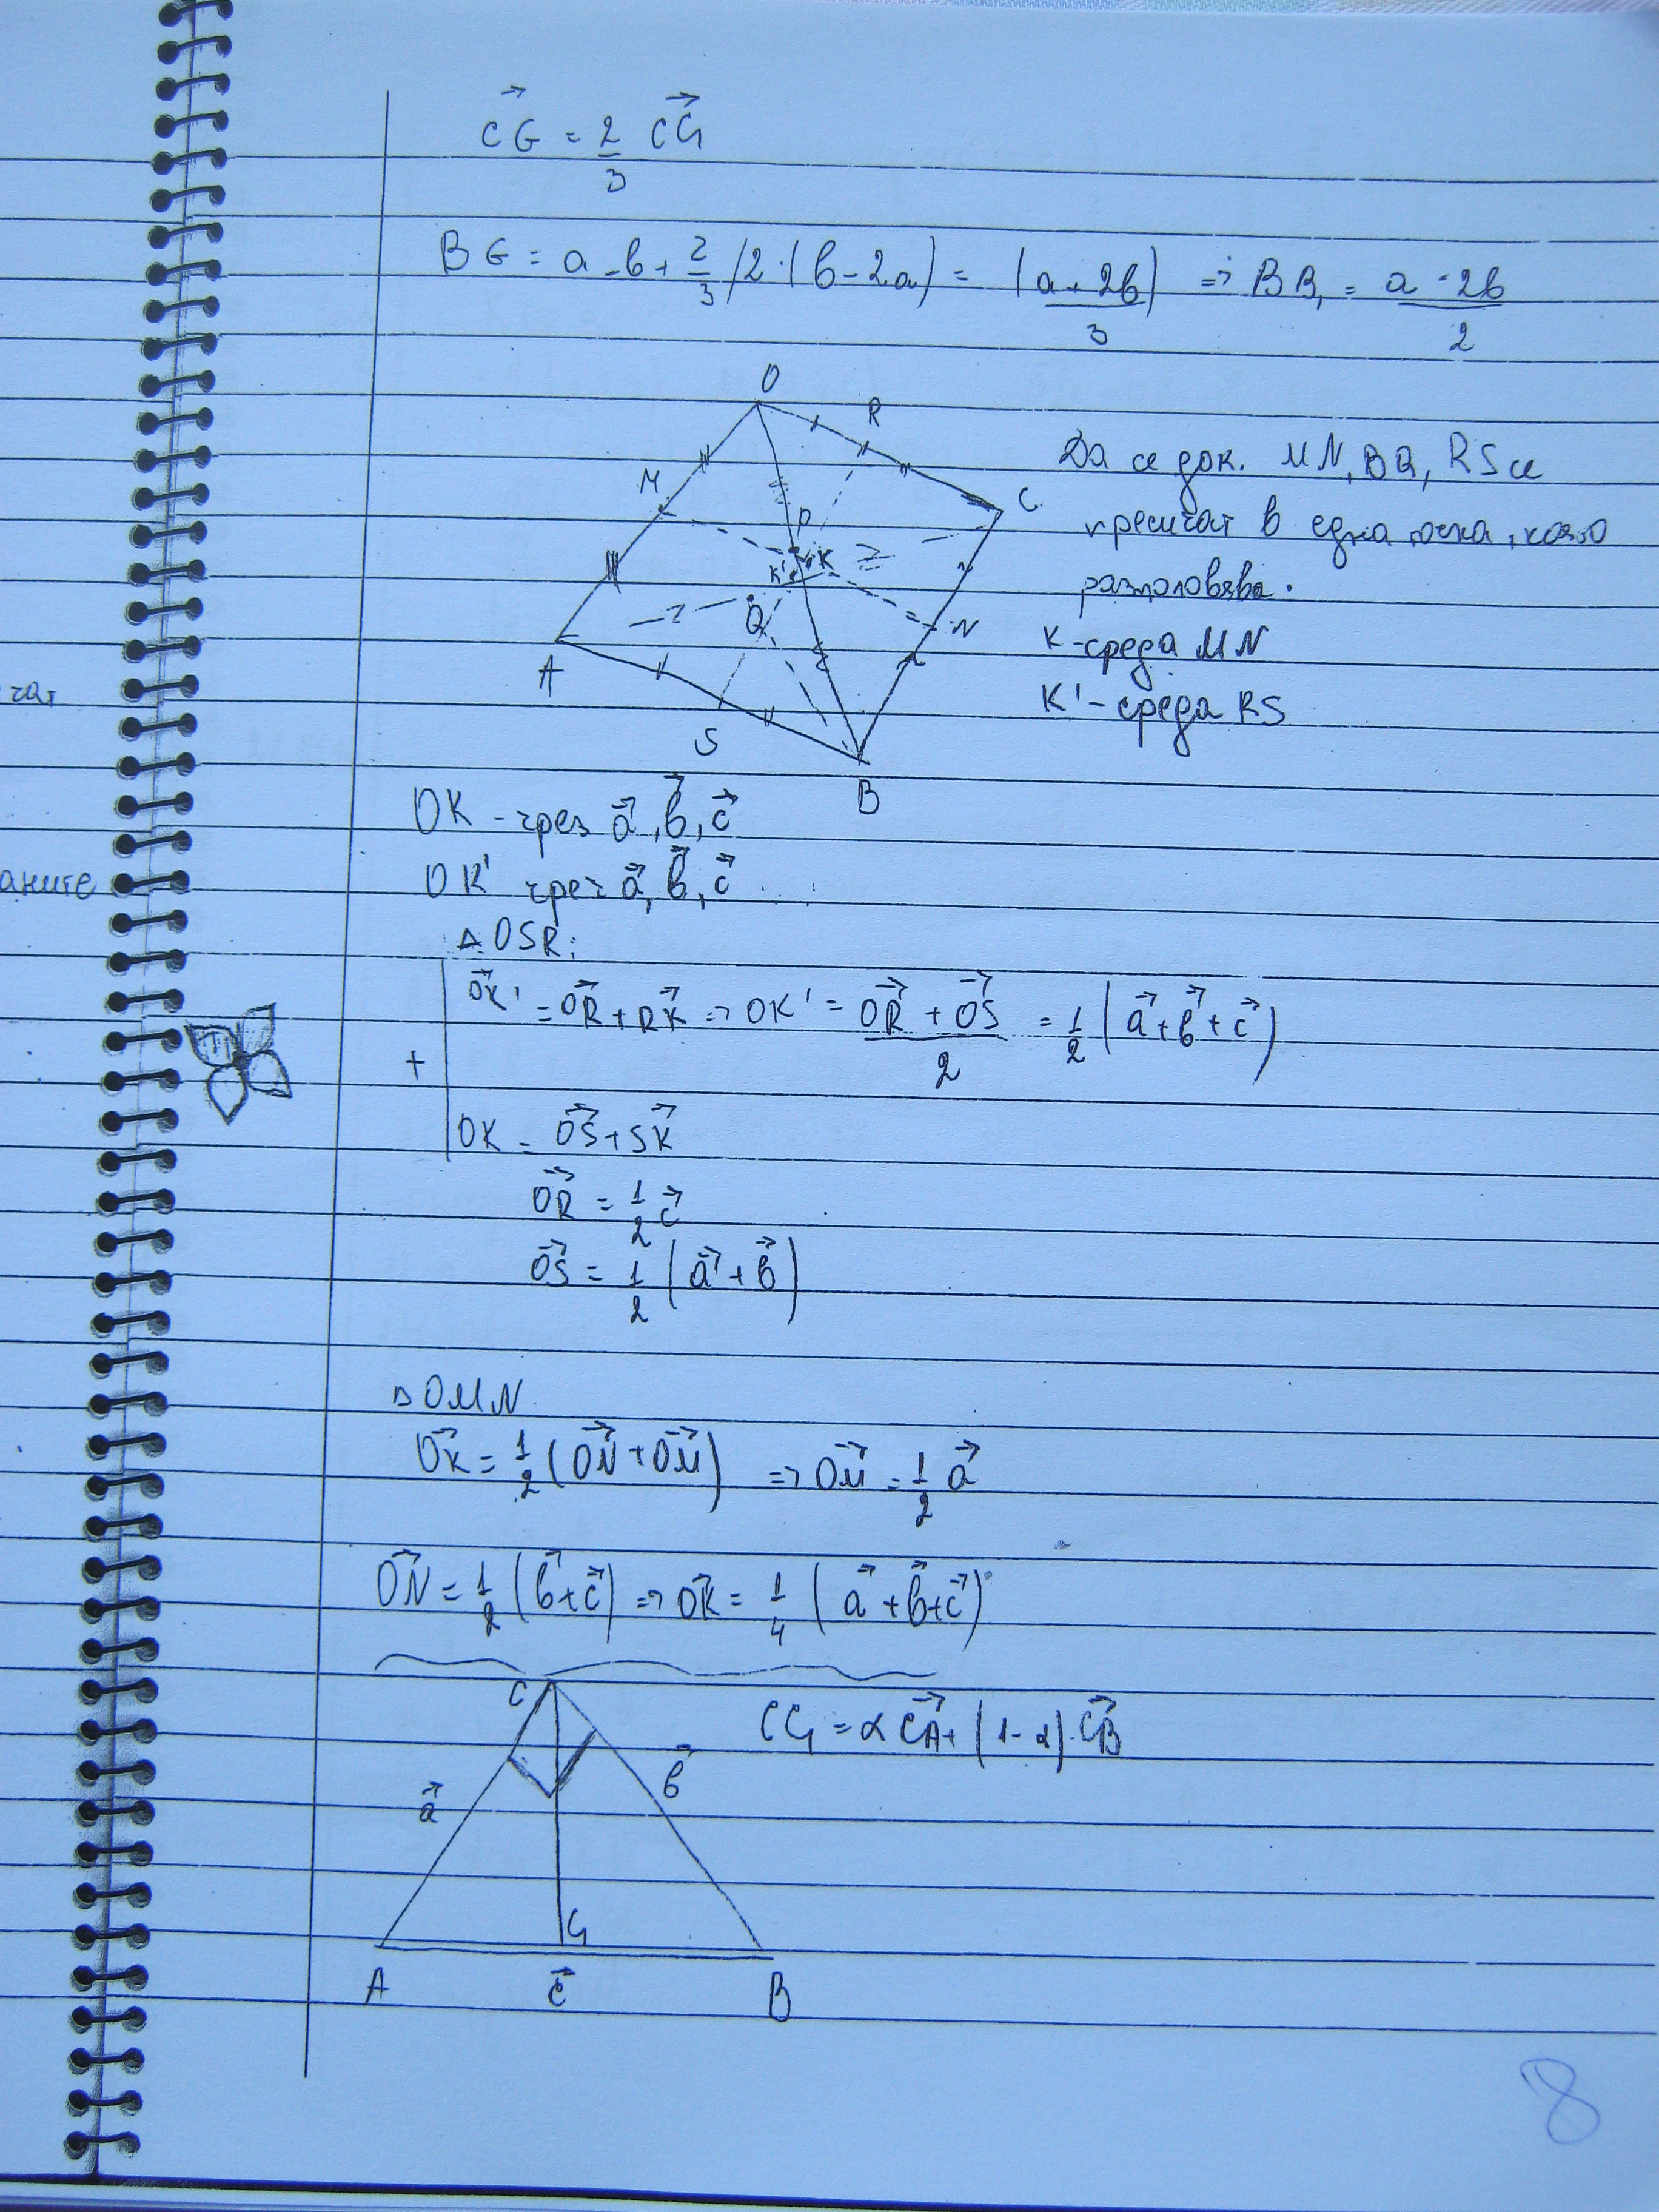 CG⃗ = 2/3 CC₁⃗
BG = a - b + 2/3 /2 · (b - 2a) = (a + 2b)/3 ⇒ BB₁ = a - 2b / 2
O
R
M
C
P
K' K
Q
N
A
S
B
Да се док. MN, BQ, RS се
пресичат в една точка, която
разполовява.
K - среда MN
K' - среда RS
чат
OK - чрез a⃗, b⃗, c⃗
аните
OK' чрез a⃗, b⃗, c⃗
Δ OSR:
OK⃗' = OR⃗ + RK⃗ ⇒ OK' = (OR⃗ + OS⃗)/2 = 1/2 (a⃗ + b⃗ + c⃗)
+
OK = OS⃗ + SK⃗
OR⃗ = 1/2 c⃗
OS⃗ = 1/2 (a⃗ + b⃗)
Δ OMN
OK⃗ = 1/2 (ON⃗ + OM⃗) ⇒ OM⃗ = 1/2 a⃗
ON⃗ = 1/2 (b⃗ + c⃗) ⇒ OK⃗ = 1/4 (a⃗ + b⃗ + c⃗)
C
CC₁ = α CA⃗ + (1 - α) · CB⃗
a⃗
b⃗
C₁
A
c⃗
B
8